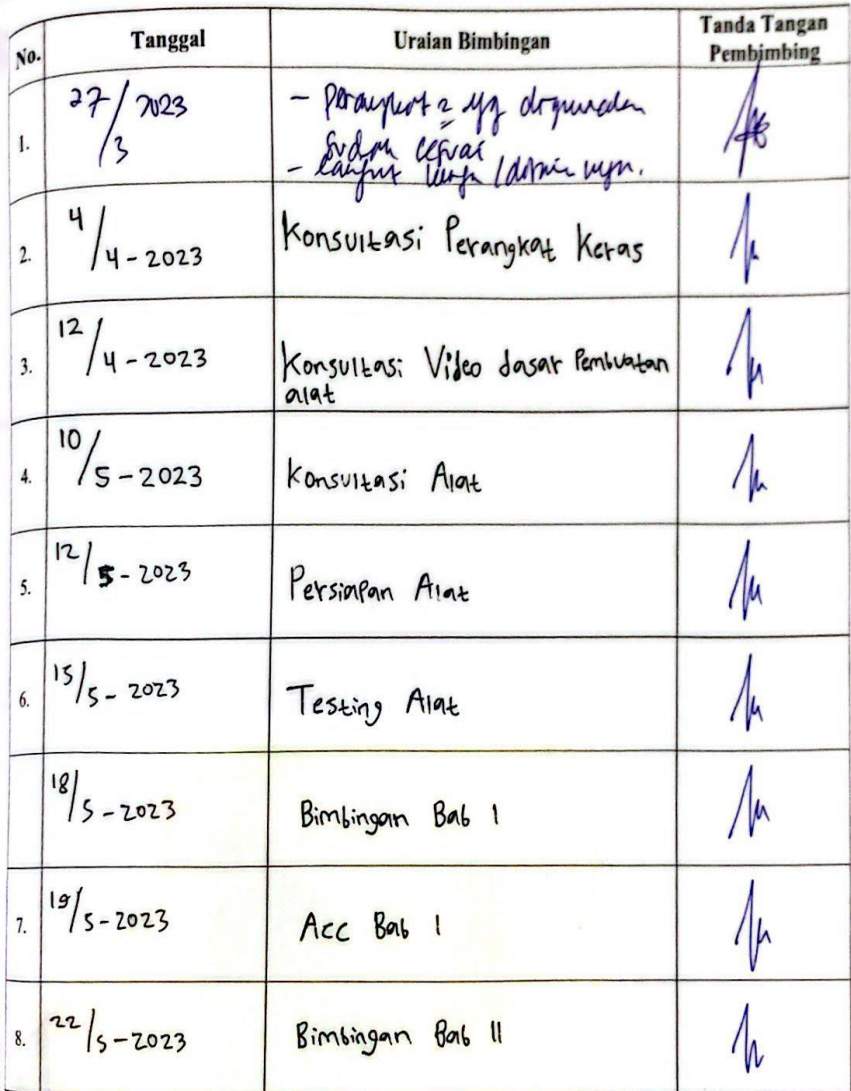 No. Tanggal Uraian Bimbingan Tanda Tangan
Pembimbing
1. 27/3 2023 - Perangkat2 yg digunakan
sudah sesuai
- Lanjut
2. 4/4-2023 Konsultasi Perangkat Keras
3. 12/4-2023 Konsultasi Video dasar Pembuatan
alat
4. 10/5-2023 Konsultasi Alat
5. 12/5-2023 Persiapan Alat
6. 15/5-2023 Testing Alat
18/5-2023 Bimbingan Bab I
7. 19/5-2023 Acc Bab I
8. 22/5-2023 Bimbingan Bab II